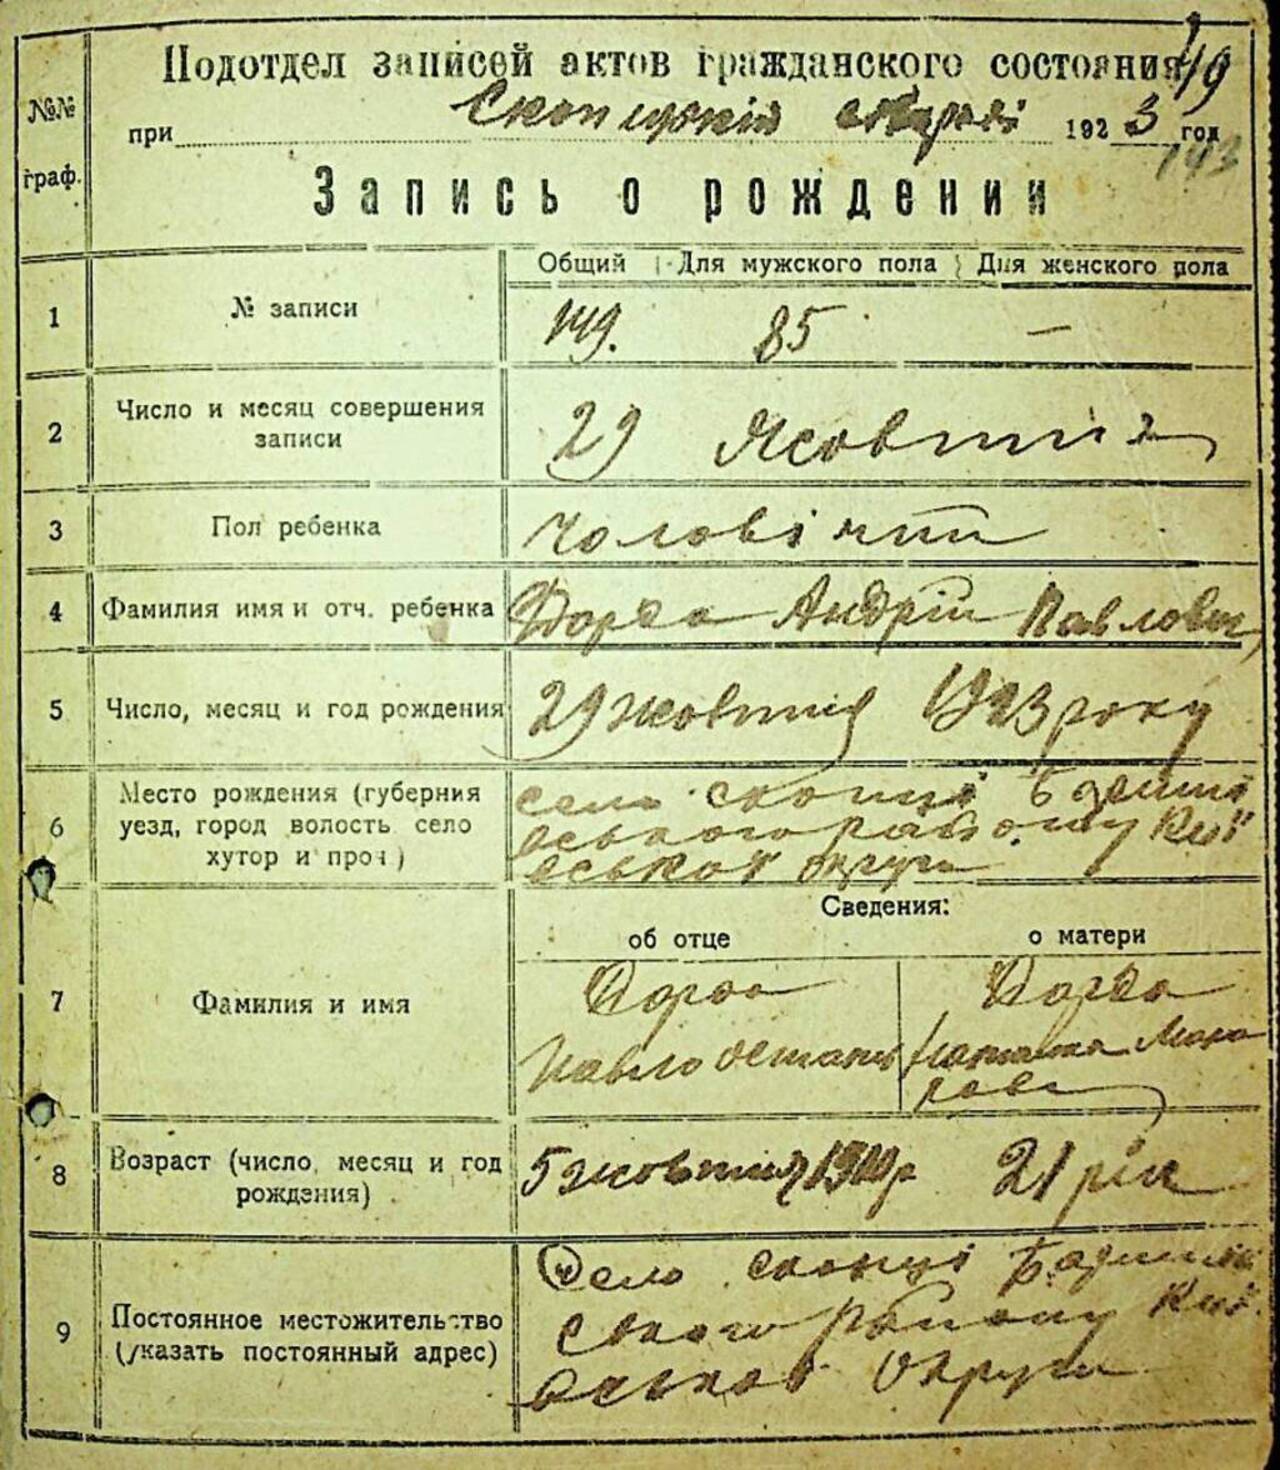 Подотдел записей актов гражданского состояния
149
при Скопцикій 1923 год
143
№№ граф.
Запись о рождении
Общий Для мужского пола Для женского пола
1 № записи 149. 85 —
2 Число и месяц совершения записи 29 Жовтня
3 Пол ребенка чоловічий
4 Фамилия имя и отч. ребенка Андрій Павлович
5 Число, месяц и год рождения 29 жовтня 1923 року
6 Место рождения (губерния уезд, город волость село хутор и проч)
село скопці Баришів
ського району Киів
ськоі округи
Сведения:
об отце о матери
7 Фамилия и имя
Павло
8 Возраст (число, месяц и год рождения) 5 жовтня 21 рік
9 Постоянное местожительство (указать постоянный адрес)
Село скопці Баришів
ського району Киів
ськоі округи